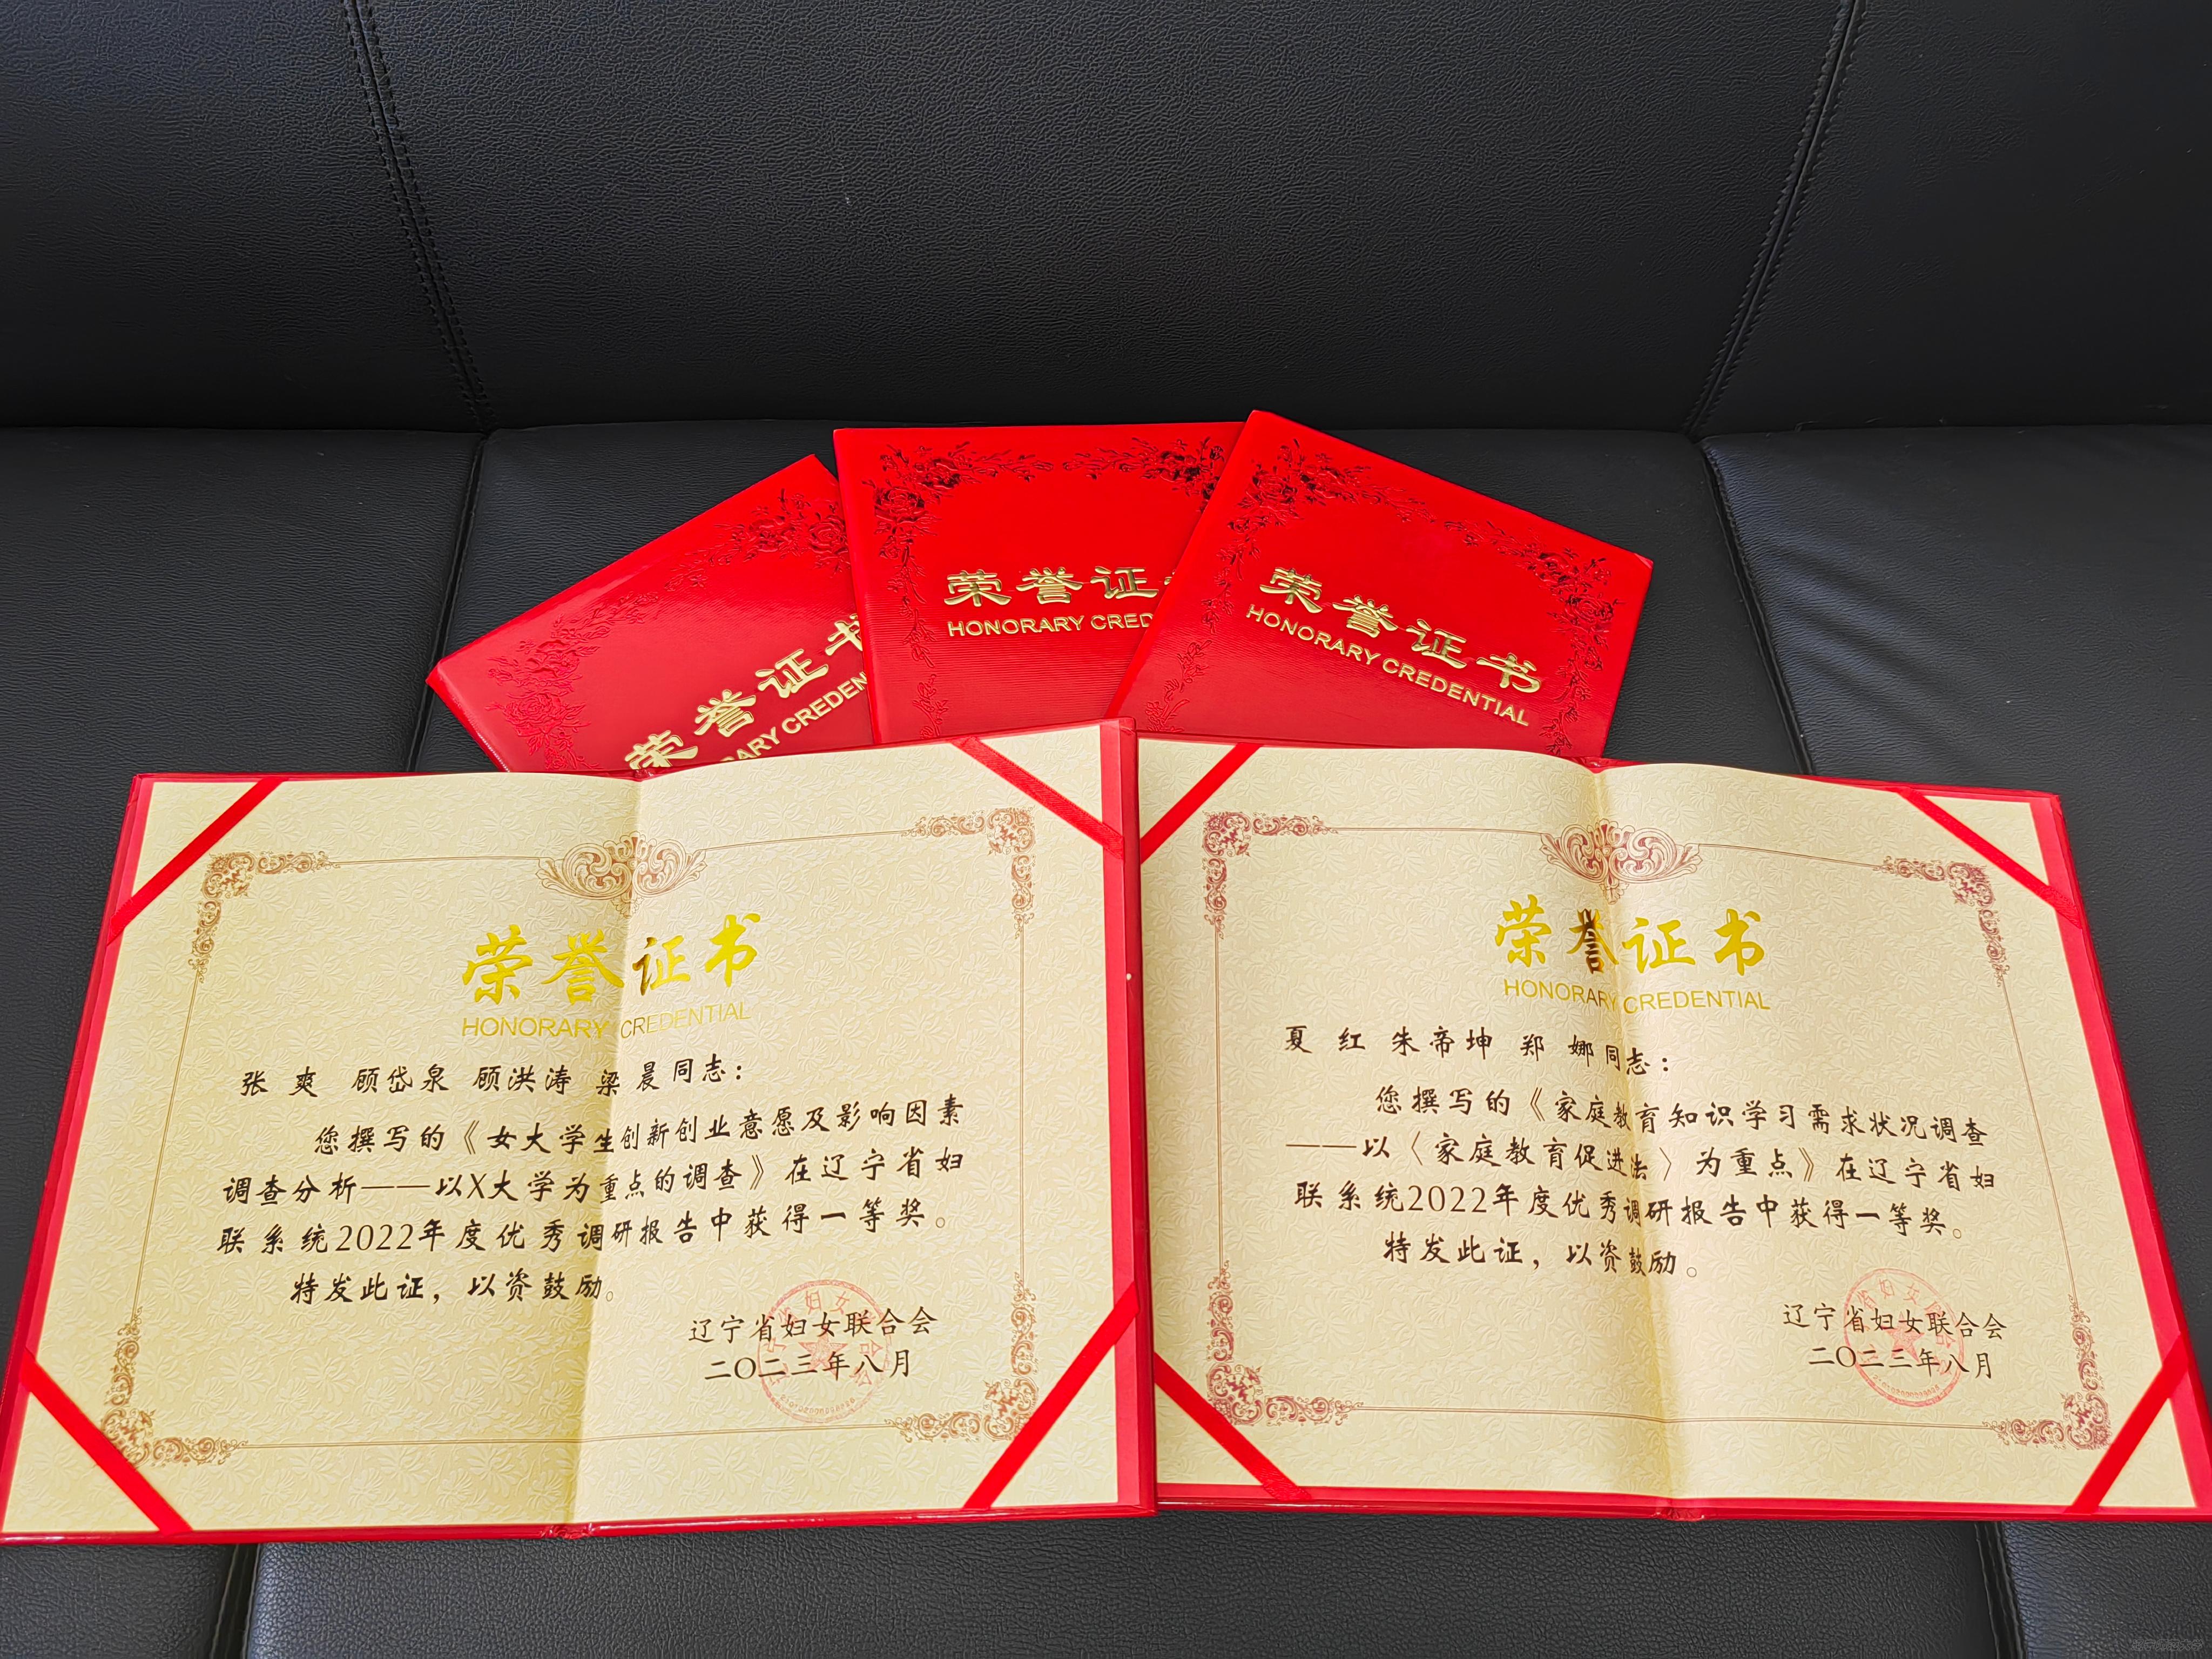 荣誉证书
荣誉证
HONORARY CRED
荣誉证书
HONORARY CREDENTIAL
荣誉证书
HONORARY CREDENTIAL
张 爽 顾岱泉 顾洪涛 梁 晨同志：
您撰写的《女大学生创新创业意愿及影响因素
调查分析——以X大学为重点的调查》在辽宁省妇
联系统2022年度优秀调研报告中获得一等奖。
特发此证，以资鼓励。
辽宁省妇女联合会
二〇二三年八月
荣誉证书
HONORARY CREDENTIAL
夏 红 朱帝坤 郑 娜同志：
您撰写的《家庭教育知识学习需求状况调查
——以〈家庭教育促进法〉为重点》在辽宁省妇
联系统2022年度优秀调研报告中获得一等奖。
特发此证，以资鼓励。
辽宁省妇女联合会
二〇二三年八月